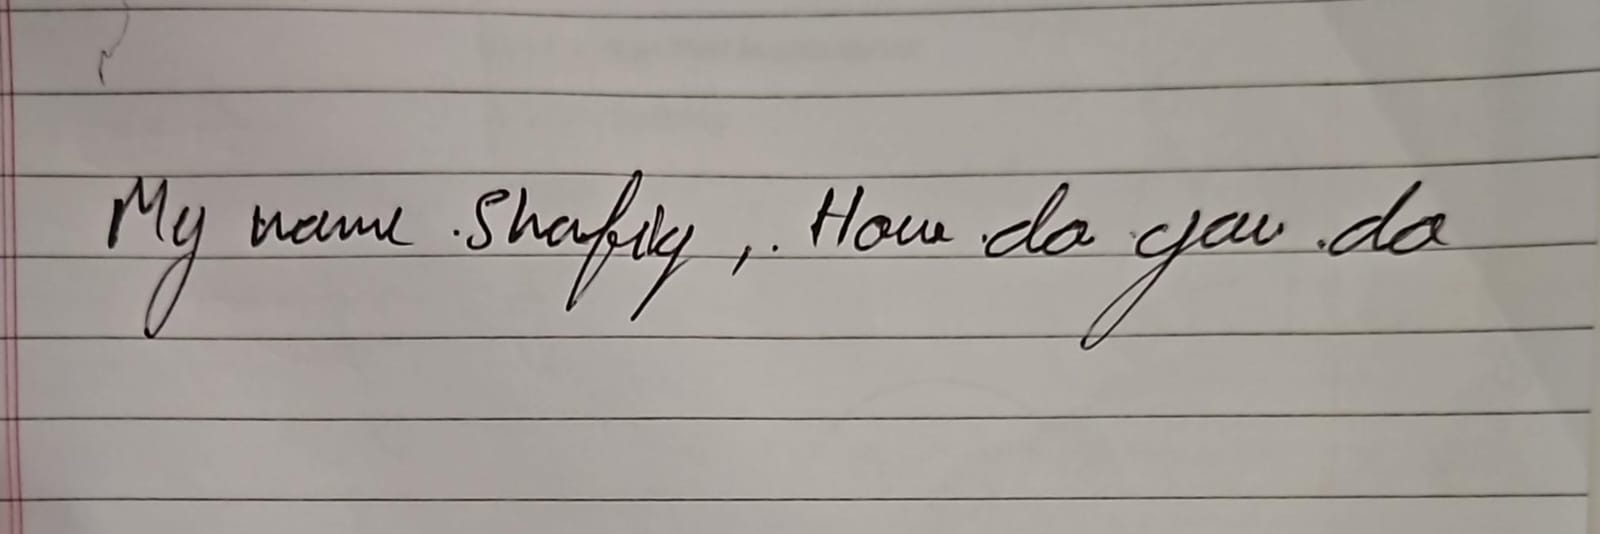 My name Shafiy, How do you do